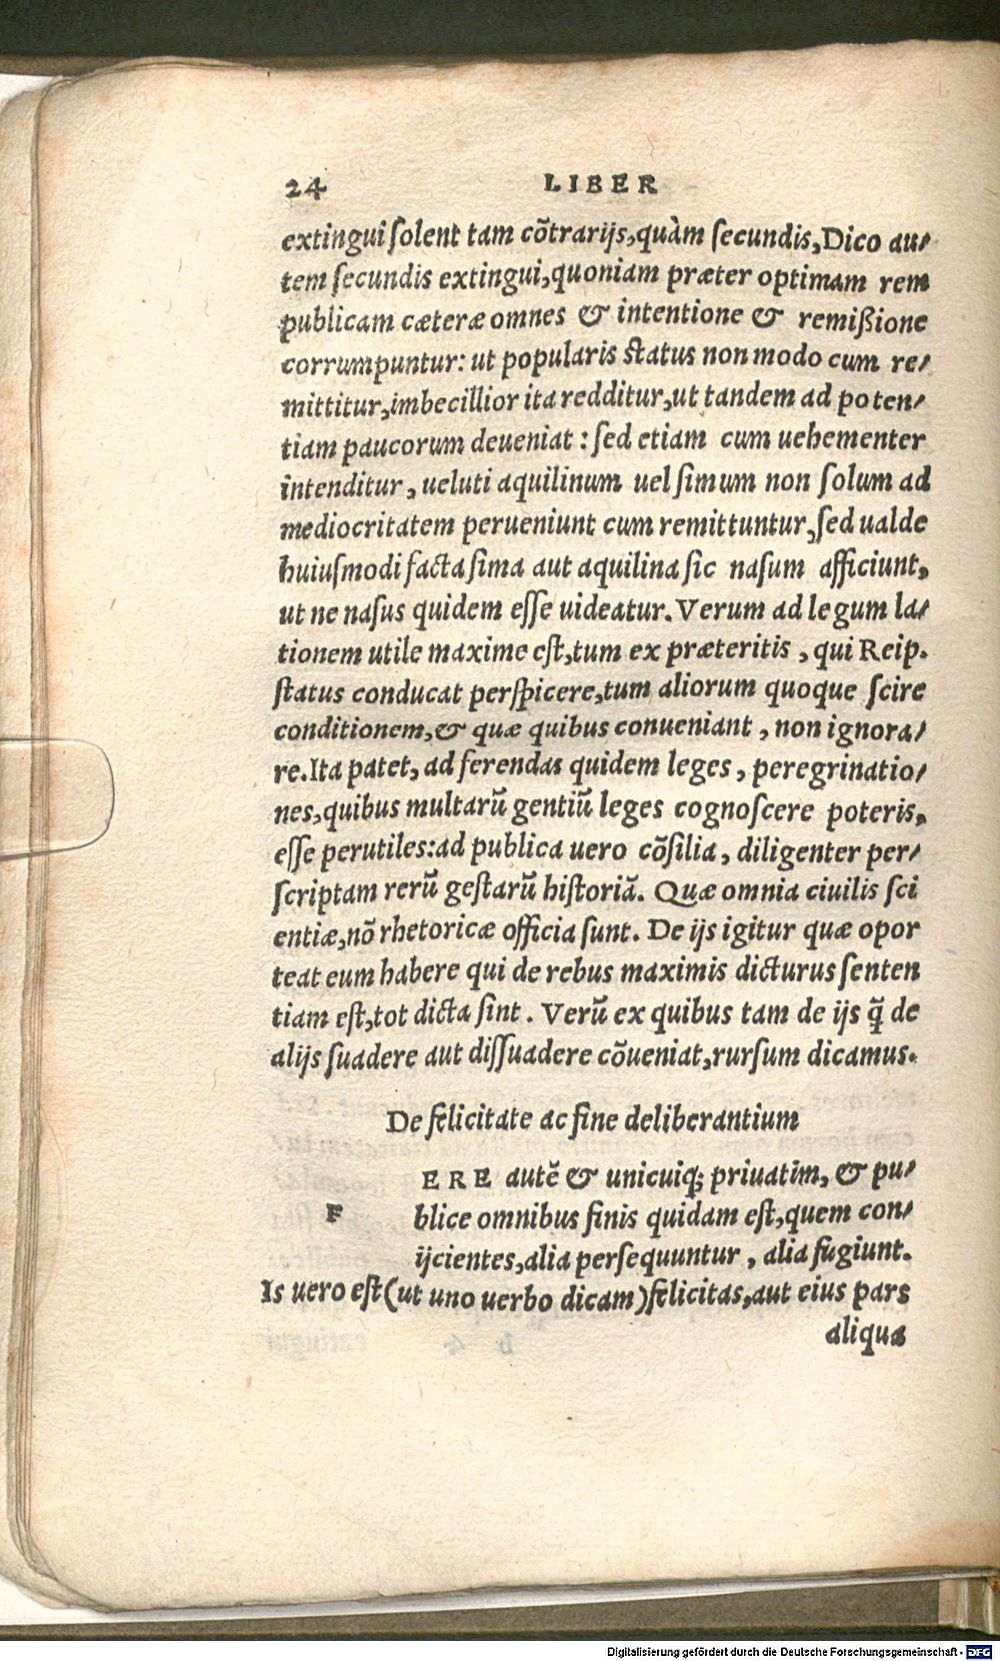 24 LIBER
extingui ſolent tam cõtrarijs, quàm ſecundis, Dico au-
tem ſecundis extingui, quoniam præter optimam rem
publicam cæteræ omnes & intentione & remißione
corrumpuntur: ut popularis ſtatus non modo cum re-
mittitur, imbecillior ita redditur, ut tandem ad poten-
tiam paucorum deueniat : ſed etiam cum uehementer
intenditur, ueluti aquilinum uel ſimum non ſolum ad
mediocritatem perueniunt cum remittuntur, ſed ualde
huiuſmodi facta ſima aut aquilina ſic naſum afficiunt,
ut ne naſus quidem eſſe uideatur. Verum ad legum la-
tionem utile maxime eſt, tum ex præteritis, qui Reip.
ſtatus conducat perſpicere, tum aliorum quoque ſcire
conditionem, & quæ quibus conueniant, non ignora-
re. Ita patet, ad ferendas quidem leges, peregrinatio-
nes, quibus multarũ gentiũ leges cognoſcere poteris,
eſſe perutiles: ad publica uero cõſilia, diligenter per-
ſcriptam rerũ geſtarũ hiſtoriã. Quæ omnia ciuilis ſci
entiæ, nõ rhetoricæ officia ſunt. De ijs igitur quæ opor
teat eum habere qui de rebus maximis dicturus ſenten
tiam eſt, tot dicta ſint. Verũ ex quibus tam de ijs q̃ de
alijs ſuadere aut diſſuadere cõueniat, rurſum dicamus.
De felicitate ac fine deliberantium
ERE autẽ & unicuiq; priuatim, & pu-
F blice omnibus finis quidam eſt, quem con-
ijcientes, alia perſequuntur, alia fugiunt.
Is uero eſt (ut uno uerbo dicam) felicitas, aut eius pars
aliqua
Digitalisierung gefördert durch die Deutsche Forschungsgemeinschaft - DFG